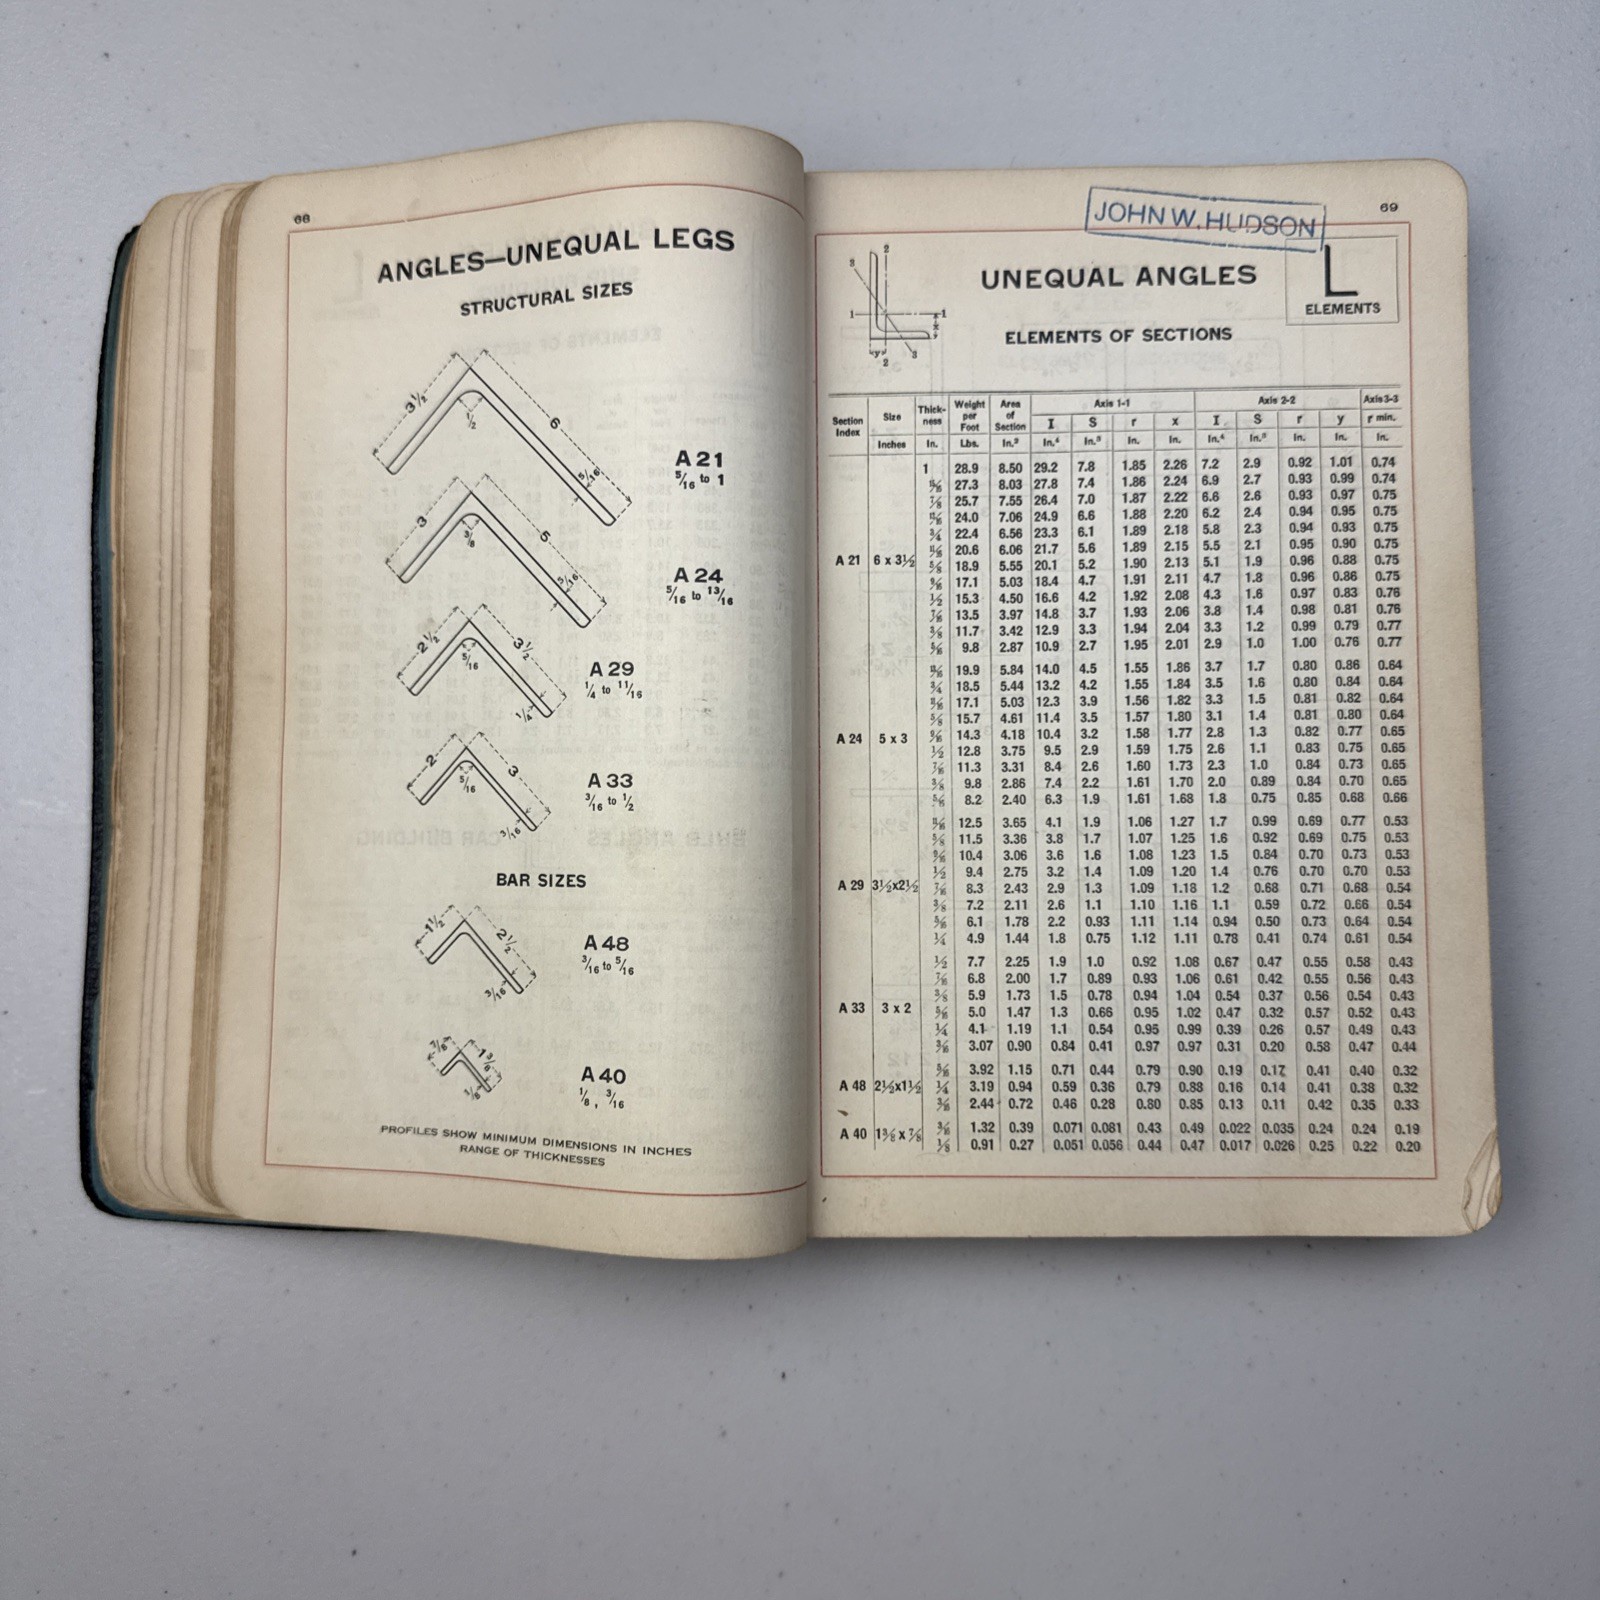 68
ANGLES—UNEQUAL LEGS
STRUCTURAL SIZES
3½ 6
½
5/16
A 21
5/16 to 1
3 5
3/8
5/16
A 24
5/16 to 13/16
2½ 3½
5/16
¼
A 29
¼ to 11/16
2 3
5/16
3/16
A 33
3/16 to ½
BAR SIZES
1½ 2½
3/16
A 48
3/16 to 5/16
7/8 1 3/8
1/8
A 40
1/8, 3/16
PROFILES SHOW MINIMUM DIMENSIONS IN INCHES
RANGE OF THICKNESSES
69
JOHN W. HUDSON
L
ELEMENTS
UNEQUAL ANGLES
ELEMENTS OF SECTIONS
3 2
1 1
x
y
2 3
Section Index Size Thick-ness Weight per Foot Area of Section Axis 1-1 Axis 2-2 Axis 3-3
I S r x I S r y r min.
Inches In. Lbs. In.² In.⁴ In.³ In. In. In.⁴ In.³ In. In. In.
1 28.9 8.50 29.2 7.8 1.85 2.26 7.2 2.9 0.92 1.01 0.74
15/16 27.3 8.03 27.8 7.4 1.86 2.24 6.9 2.7 0.93 0.99 0.74
7/8 25.7 7.55 26.4 7.0 1.87 2.22 6.6 2.6 0.93 0.97 0.75
13/16 24.0 7.06 24.9 6.6 1.88 2.20 6.2 2.4 0.94 0.95 0.75
3/4 22.4 6.56 23.3 6.1 1.89 2.18 5.8 2.3 0.94 0.93 0.75
11/16 20.6 6.06 21.7 5.6 1.89 2.15 5.5 2.1 0.95 0.90 0.75
A 21 6 x 3½ 5/8 18.9 5.55 20.1 5.2 1.90 2.13 5.1 1.9 0.96 0.88 0.75
9/16 17.1 5.03 18.4 4.7 1.91 2.11 4.7 1.8 0.96 0.86 0.75
1/2 15.3 4.50 16.6 4.2 1.92 2.08 4.3 1.6 0.97 0.83 0.76
7/16 13.5 3.97 14.8 3.7 1.93 2.06 3.8 1.4 0.98 0.81 0.76
3/8 11.7 3.42 12.9 3.3 1.94 2.04 3.3 1.2 0.99 0.79 0.77
5/16 9.8 2.87 10.9 2.7 1.95 2.01 2.9 1.0 1.00 0.76 0.77
13/16 19.9 5.84 14.0 4.5 1.55 1.86 3.7 1.7 0.80 0.86 0.64
3/4 18.5 5.44 13.2 4.2 1.55 1.84 3.5 1.6 0.80 0.84 0.64
11/16 17.1 5.03 12.3 3.9 1.56 1.82 3.3 1.5 0.81 0.82 0.64
5/8 15.7 4.61 11.4 3.5 1.57 1.80 3.1 1.4 0.81 0.80 0.64
A 24 5 x 3 9/16 14.3 4.18 10.4 3.2 1.58 1.77 2.8 1.3 0.82 0.77 0.65
1/2 12.8 3.75 9.5 2.9 1.59 1.75 2.6 1.1 0.83 0.75 0.65
7/16 11.3 3.31 8.4 2.6 1.60 1.73 2.3 1.0 0.84 0.73 0.65
3/8 9.8 2.86 7.4 2.2 1.61 1.70 2.0 0.89 0.84 0.70 0.65
5/16 8.2 2.40 6.3 1.9 1.61 1.68 1.8 0.75 0.85 0.68 0.66
11/16 12.5 3.65 4.1 1.9 1.06 1.27 1.7 0.99 0.69 0.77 0.53
5/8 11.5 3.36 3.8 1.7 1.07 1.25 1.6 0.92 0.69 0.75 0.53
9/16 10.4 3.06 3.6 1.6 1.08 1.23 1.5 0.84 0.70 0.73 0.53
1/2 9.4 2.75 3.2 1.4 1.09 1.20 1.4 0.76 0.70 0.70 0.53
A 29 3½x2½ 7/16 8.3 2.43 2.9 1.3 1.09 1.18 1.2 0.68 0.71 0.68 0.54
3/8 7.2 2.11 2.6 1.1 1.10 1.16 1.1 0.59 0.72 0.66 0.54
5/16 6.1 1.78 2.2 0.93 1.11 1.14 0.94 0.50 0.73 0.64 0.54
1/4 4.9 1.44 1.8 0.75 1.12 1.11 0.78 0.41 0.74 0.61 0.54
1/2 7.7 2.25 1.9 1.0 0.92 1.08 0.67 0.47 0.55 0.58 0.43
7/16 6.8 2.00 1.7 0.89 0.93 1.06 0.61 0.42 0.55 0.56 0.43
3/8 5.9 1.73 1.5 0.78 0.94 1.04 0.54 0.37 0.56 0.54 0.43
A 33 3 x 2 5/16 5.0 1.47 1.3 0.66 0.95 1.02 0.47 0.32 0.57 0.52 0.43
1/4 4.1 1.19 1.1 0.54 0.95 0.99 0.39 0.26 0.57 0.49 0.43
3/16 3.07 0.90 0.84 0.41 0.97 0.97 0.31 0.20 0.58 0.47 0.44
5/16 3.92 1.15 0.71 0.44 0.79 0.90 0.19 0.17 0.41 0.40 0.32
A 48 2½x1½ 1/4 3.19 0.94 0.59 0.36 0.79 0.88 0.16 0.14 0.41 0.38 0.32
3/16 2.44 0.72 0.46 0.28 0.80 0.85 0.13 0.11 0.42 0.35 0.33
A 40 1 3/8 x 7/8 3/16 1.32 0.39 0.071 0.081 0.43 0.49 0.022 0.035 0.24 0.24 0.19
1/8 0.91 0.27 0.051 0.056 0.44 0.47 0.017 0.026 0.25 0.22 0.20